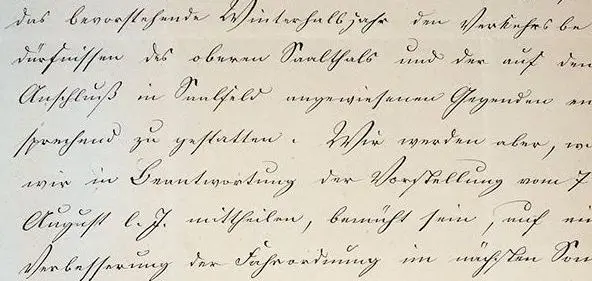 das bevorstehende Winterhalbjahr den Verkehrsbe
dürfnissen des oberen Saalthals und der auf den
Anschluß in Saalfeld angewiesenen Gegenden en
sprechend zu gestatten. Wir werden aber, w
wir in Beantwortung der Vorstellung vom 7
August l. J. mittheilen, bemüht sein, auf ein
Verbesserung der Fahrordnung im nächsten Som